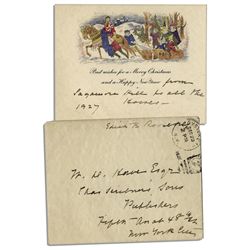 Best wishes for a Merry Christmas
and a Happy New Year from
Sagamore Hill to all the
1927 Howes
Edith K. Roosevelt
M. D. Howe Esqr
Chas Scribner's Sons
Publishers
Fifth Av. at 48th St
New York City